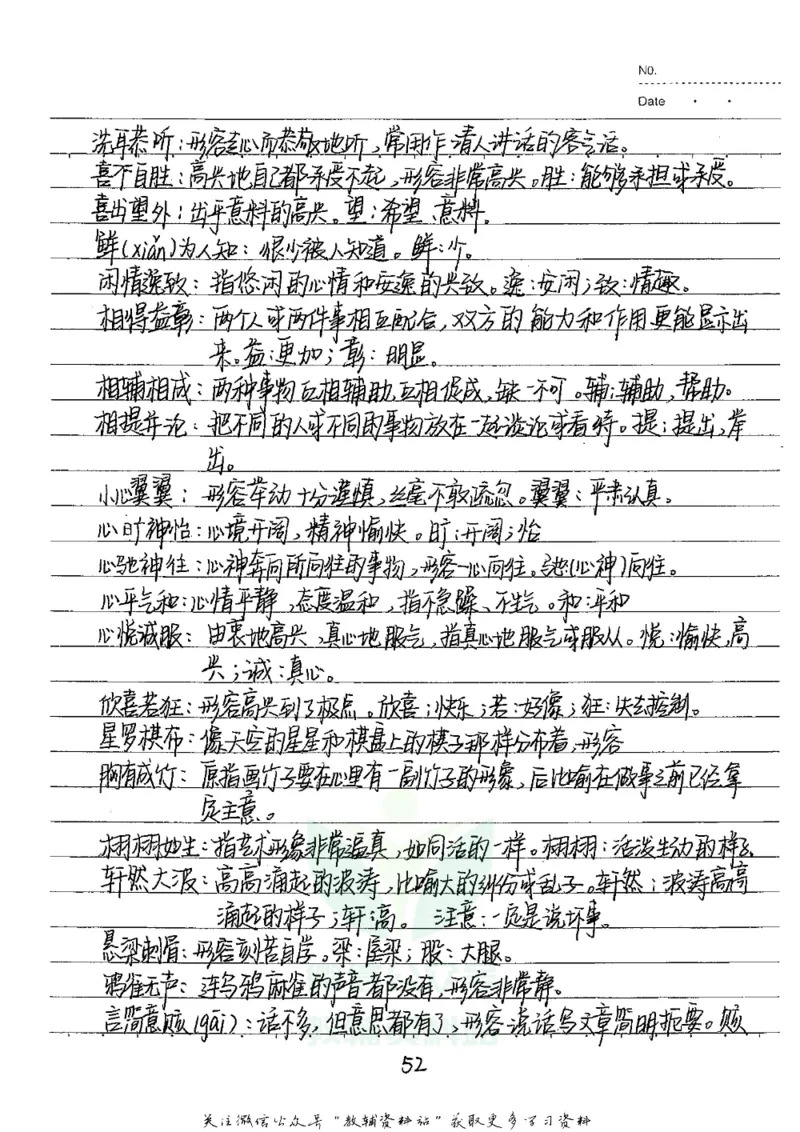 No.
Date
洗耳恭听：形容专心而恭敬地听，常用作请人讲话的客气话。
喜不自胜：高兴地自己都承受不起，形容非常高兴。胜：能够承担或承受。
喜出望外：出乎意料的高兴。望：希望、意料。
鲜(xiǎn)为人知：很少被人知道。鲜：少。
闲情逸致：指悠闲的心情和安逸的兴致。逸：安闲；致：情趣。
相得益彰：两个人或两件事相互配合，双方的能力和作用更能显示出
来。益：更加；彰：明显。
相辅相成：两种事物互相辅助，互相促成，缺一不可。辅：辅助，帮助。
相提并论：把不同的人或不同的事物放在一起谈论或看待。提：提出，举
出。
小心翼翼：形容举动十分谨慎，丝毫不敢疏忽。翼翼：严肃认真。
心旷神怡：心境开阔，精神愉快。旷：开阔；怡
心驰神往：心神奔向所向往的事物，形容一心向往。驰：(心神)向往。
心平气和：心情平静，态度温和，指不急躁、不生气。和：平和
心悦诚服：由衷地高兴，真心地服气，指真心地服气或服从。悦：愉快，高
兴；诚：真心。
欣喜若狂：形容高兴到了极点。欣喜：快乐；若：好像；狂：失去控制。
星罗棋布：像天空的星星和棋盘上的棋子那样分布着，形容
胸有成竹：原指画竹子要在心里有一副竹子的形象，后比喻在做事之前已经拿
定主意。
栩栩如生：指艺术形象非常逼真，如同活的一样。栩栩：活泼生动的样子
轩然大波：高高涌起的波涛，比喻大的纠纷或乱子。轩然：波涛高高
涌起的样子；轩：高。 注意：一定是说坏事。
悬梁刺股：形容刻苦自学。梁：屋梁；股：大腿。
鸦雀无声：连乌鸦麻雀的声音都没有，形容非常静。
言简意赅(gāi)：话不多，但意思都有了，形容说话写文章简明扼要。赅
52
关注微信公众号"教辅资料站"获取更多学习资料